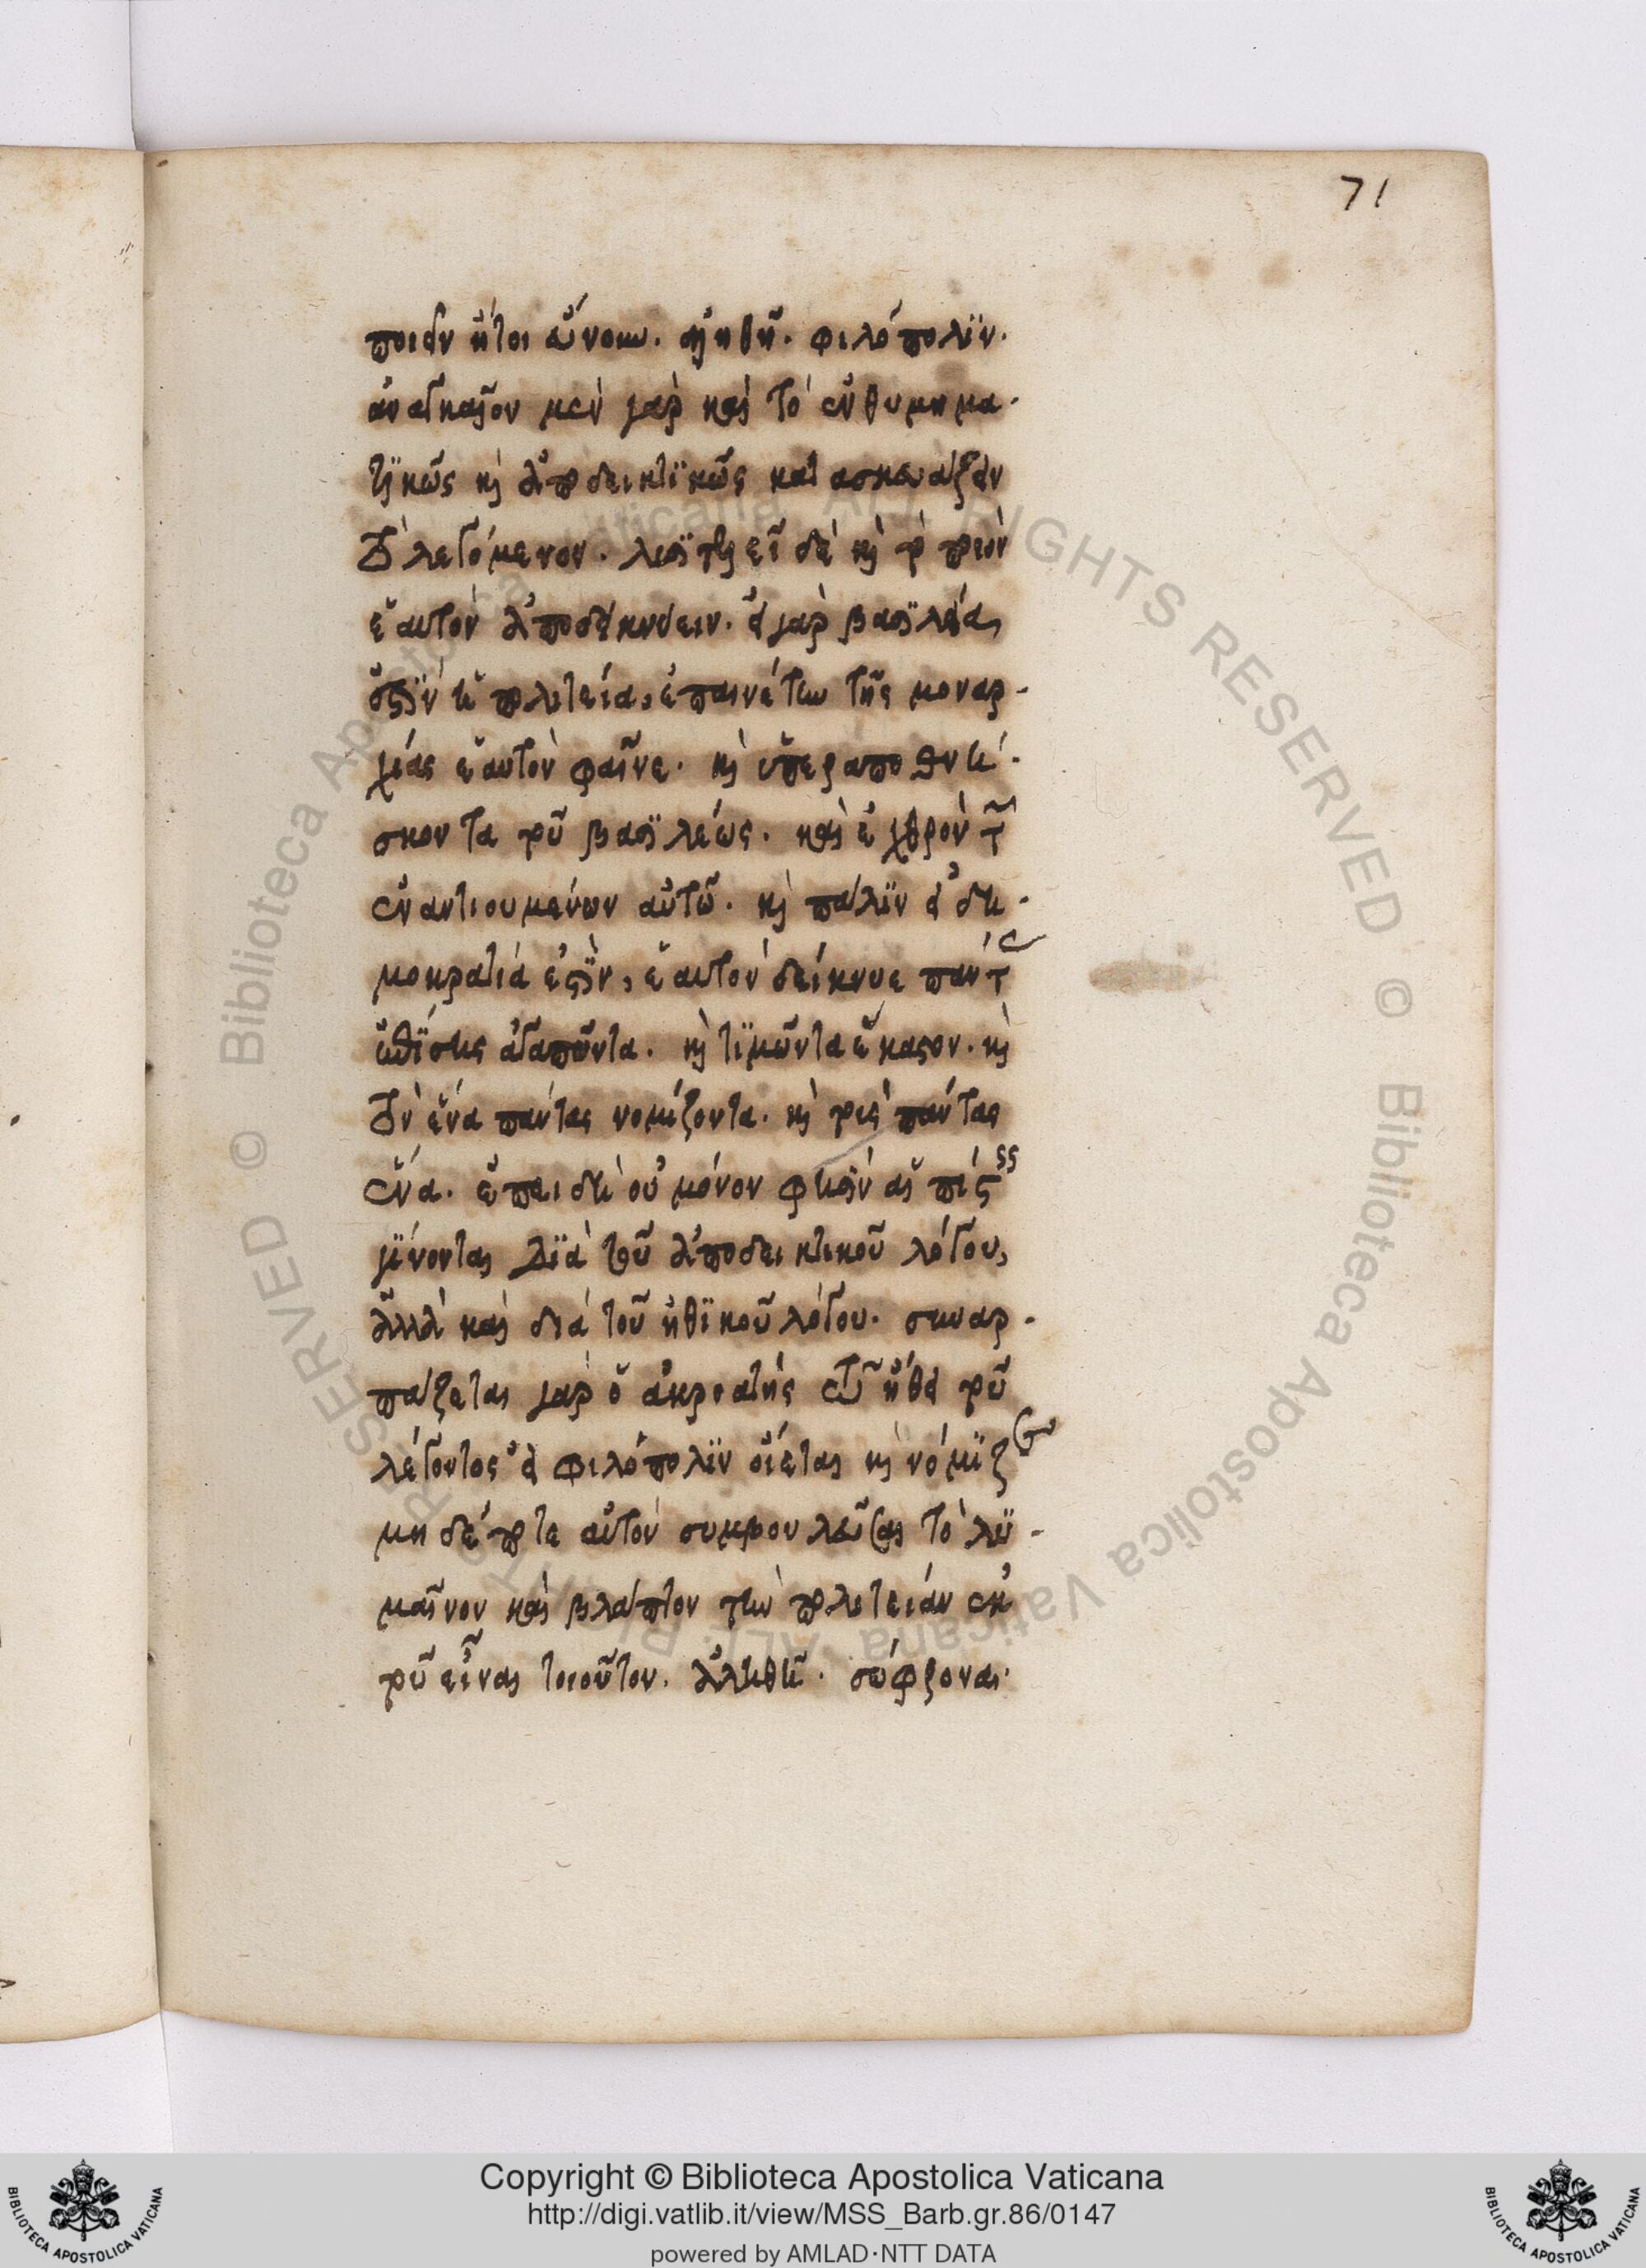 71
ποιὸν ἤτοι εὔνουν. ἀληθῆ. φιλόπολϊν.
ἀναγκαῖον μὲν γὰρ καὶ τὸ ἐνθυμημα-
τϊκῶς κὶ ἀποδεικτϊκῶς κατασκευάζειν
τὸ λεγόμενον. λυσϊτελεῖ δὲ κὶ τὸ ποιὸν
ἑαυτὸν ἀποδεικνύειν. εἰ γὰρ βασϊλεία
ἐστϊν ἡ πολιτεία, ἐπαινέτην τῆς μοναρ-
χίας ἑαυτὸν φαῖνε. κὶ ὑπεραποθνή-
σκοντα τοῦ βασϊλέως. καὶ ἐχθρὸν τῶν
ἐναντιουμένων αὐτῷ. κὶ πάλϊν εἰ δη-
μοκρατία ἐστϊν, ἑαυτὸν δείκνυε πάντας
ἐπϊσης ἀγαπῶντα. κὶ τϊμῶντα ἕκαστον. κὶ
τὸν ἕνα πάντας νομίζοντα. κὶ τοὺς πάντας
ἕνα. ἐπειδὴ οὐ μόνον φησὶν αἱ πίστεις
γϊνονται δϊὰ τοῦ ἀποδεικτικοῦ λόγου,
ἀλλὰ καὶ διὰ τοῦ ἠθϊκοῦ λόγου. συναρ-
πάζεται γὰρ ὁ ἀκροατὴς τῷ ἤθει τοῦ
λέγοντος εἰ φιλόπολϊν οἴεται κὶ νομϊζει
μηδέποτε αὐτὸν συμβουλεῦσαι τὸ λϋ-
μαῖνον καὶ βλάπτον τὴν πολιτείαν ἐκ
τοῦ εἶναι τοιοῦτον. ἀληθῆ. σώφρονα.
Copyright © Biblioteca Apostolica Vaticana
http://digi.vatlib.it/view/MSS_Barb.gr.86/0147
powered by AMLAD·NTT DATA
BIBLIOTECA APOSTOLICA VATICANA
BIBLIOTECA APOSTOLICA VATICANA